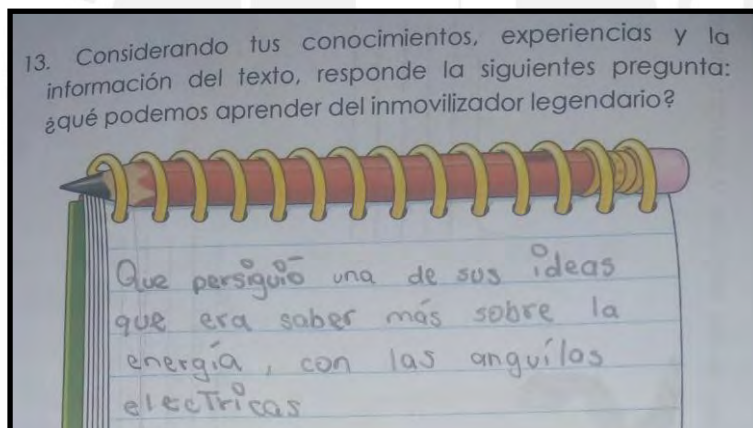 13. Considerando tus conocimientos, experiencias y la
información del texto, responde la siguientes pregunta:
¿qué podemos aprender del inmovilizador legendario?
Que persiguió una de sus ideas
que era saber más sobre la
energía, con las anguílas
elecTricas